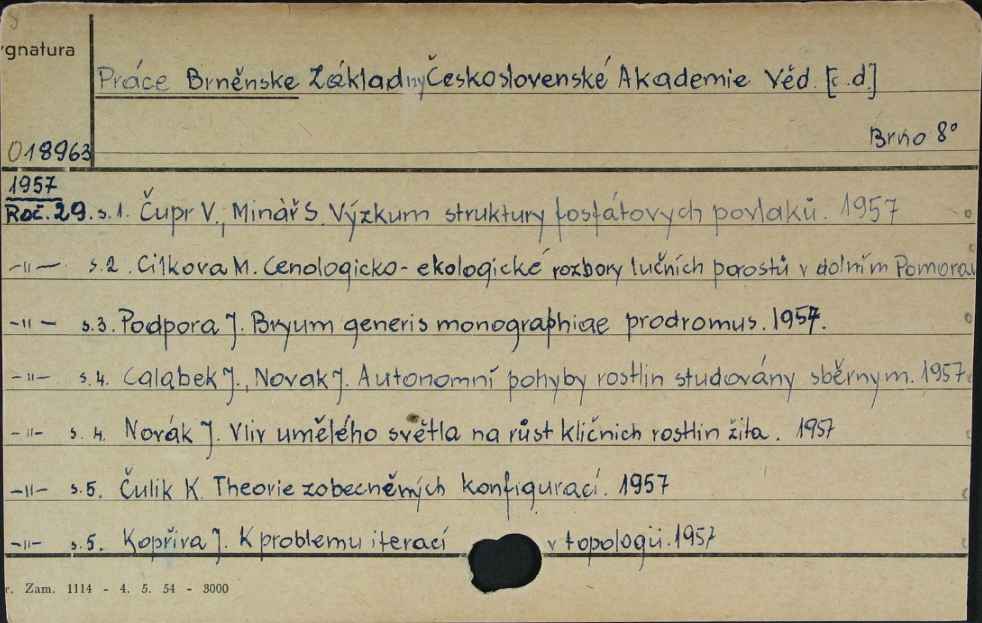 ygnatura
Práce Brněnske Základny Československé Akademie Věd. [c.d.]
018963
Brno 8°
1957
Roč. 29. s.1. Čupr V., Minář S. Výzkum struktury fosfátovych povlaků. 1957
-"- s.2. Cilkova M. Cenologicko-ekologické rozbory lučních porostů v dolním Pomorav
-"- s.3. Podpora J. Bryum generis monographiae prodromus. 1957.
-"- s.4. Calabek J., Novak J. Autonomní pohyby rostlin studovány sběrnym. 1957
-"- s. 4. Novák J. Vliv umělého světla na růst kličnich rostlin žita. 1957
-"- s.5. Čulik K. Theorie zobecněných konfigurací. 1957
-"- s.5. Kopřiva J. K problemu iterací v topologii. 1957
r. Zam. 1114 - 4. 5. 54 - 3000